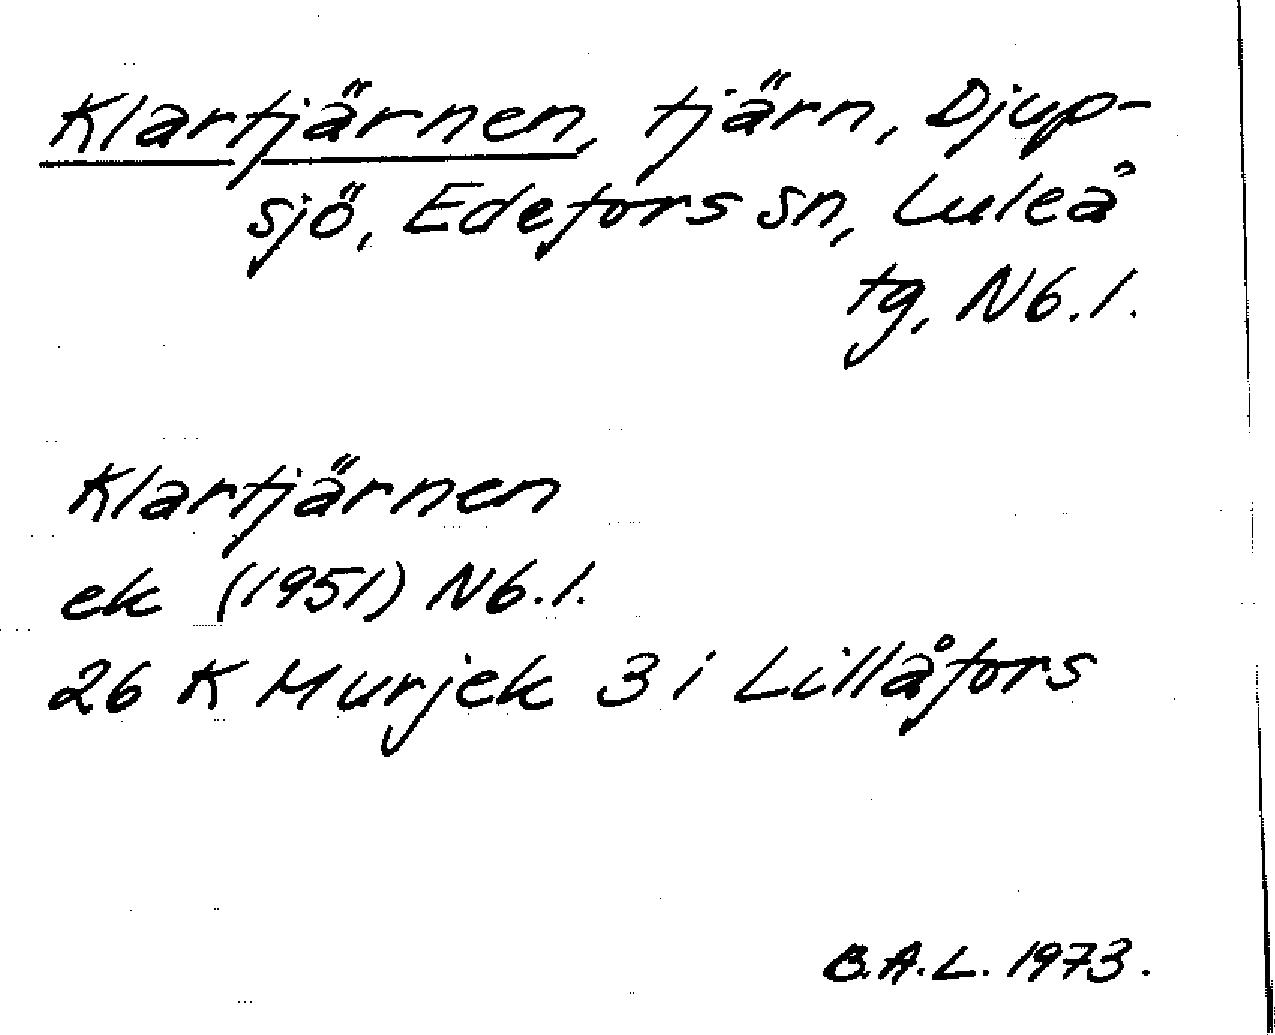 Klartjärnen, tjärn, Djup-
sjö, Edefors sn, Luleå
tg, Nb. l.
Klartjärnen
ek (1951) Nb. l.
26 K Murjek 3 i Lillåfors
B.A.L. 1973.